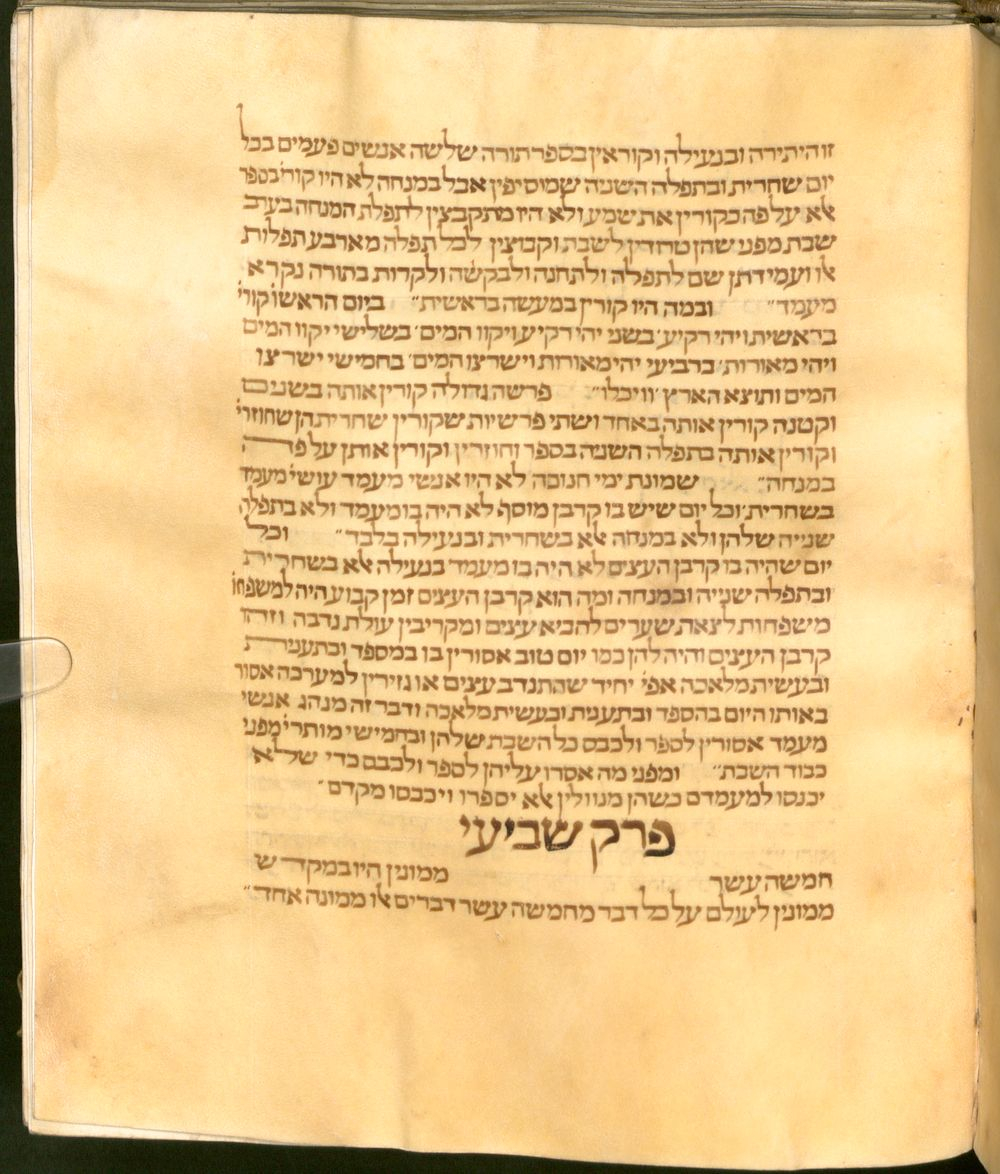 זו היתירה ובנעילה וקוראין בספר תורה שלשה אנשים פעמים בכל
יום שחרית ובתפלה השניה שמוסיפין אבל במנחה לא היו קורי׳ בספר
אלא על פה כקורין את שמע ולא היו מתקבצין לתפלת המנחה בערב
שבת מפני שהן טרודין לשבת וקבוצין לכל תפלה מארבע תפלות
אלו ועמידתן שם לתפלה ולתחנה ולבקשה ולקרות בתורה נקרא
מעמד״ ובמה היו קורין במעשה בראשית״ ביום הראשון קורי׳
בראשית ויהי רקיע׳ בשני יהי רקיע ויקוו המים׳ בשלישי יקוו המים
ויהי מאורות׳ ברביעי יהי מאורות וישרצו המים׳ בחמישי ישרצו
המים ותוצא הארץ ׳וויכלו״ פרשה גדולה קורין אותה בשנים
וקטנה קורין אותה באחד ושתי פרשיות שקורין שחרית הן שחוזרי׳
וקורין אותה בתפלה השניה בספר וחוזרין וקורין אותן על פה
במנחה״ שמונת ימי חנוכה לא היו אנשי מעמד עושי׳ מעמד
בשחרית׳ וכל יום שיש בו קרבן מוסף לא היה בו מעמד ולא בתפלה
שנייה שלהן ולא במנחה אלא בשחרית ובנעילה בלבד״ וכל
יום שהיה בו קרבן העצים לא היה בו מעמד בנעילה אלא בשחרית
ובתפלה שנייה ובמנחה ומה הוא קרבן העצים זמן קבוע היה למשפחו׳
משפחות לצאת שערים להביא עצים ומקריבין עולת נדבה וזהו
קרבן העצים והיה להן כמו יום טוב אסורין בו במספד ובתענית
ובעשית מלאכה אפי׳ יחיד שהתנדב עצים או גזירין למערכה אסור
באותו היום בהספד ובתענית ובעשית מלאכה ודבר זה מנהג אנשי
מעמד אסורין לספר ולכבס כל השבת שלהן ובחמישי מותרי׳ מפני
כבוד השבת״ ומפני מה אסרו עליהן לספר ולכבס כדי שלא
יכנסו למעמדם כשהן מנוולין אלא יספרו ויכבסו מקדם״
פרק שביעי
חמשה עשר ממונין היו במקדש
ממונין לעולם על כל דבר מחמשה עשר דברים אלו ממונה אחד״